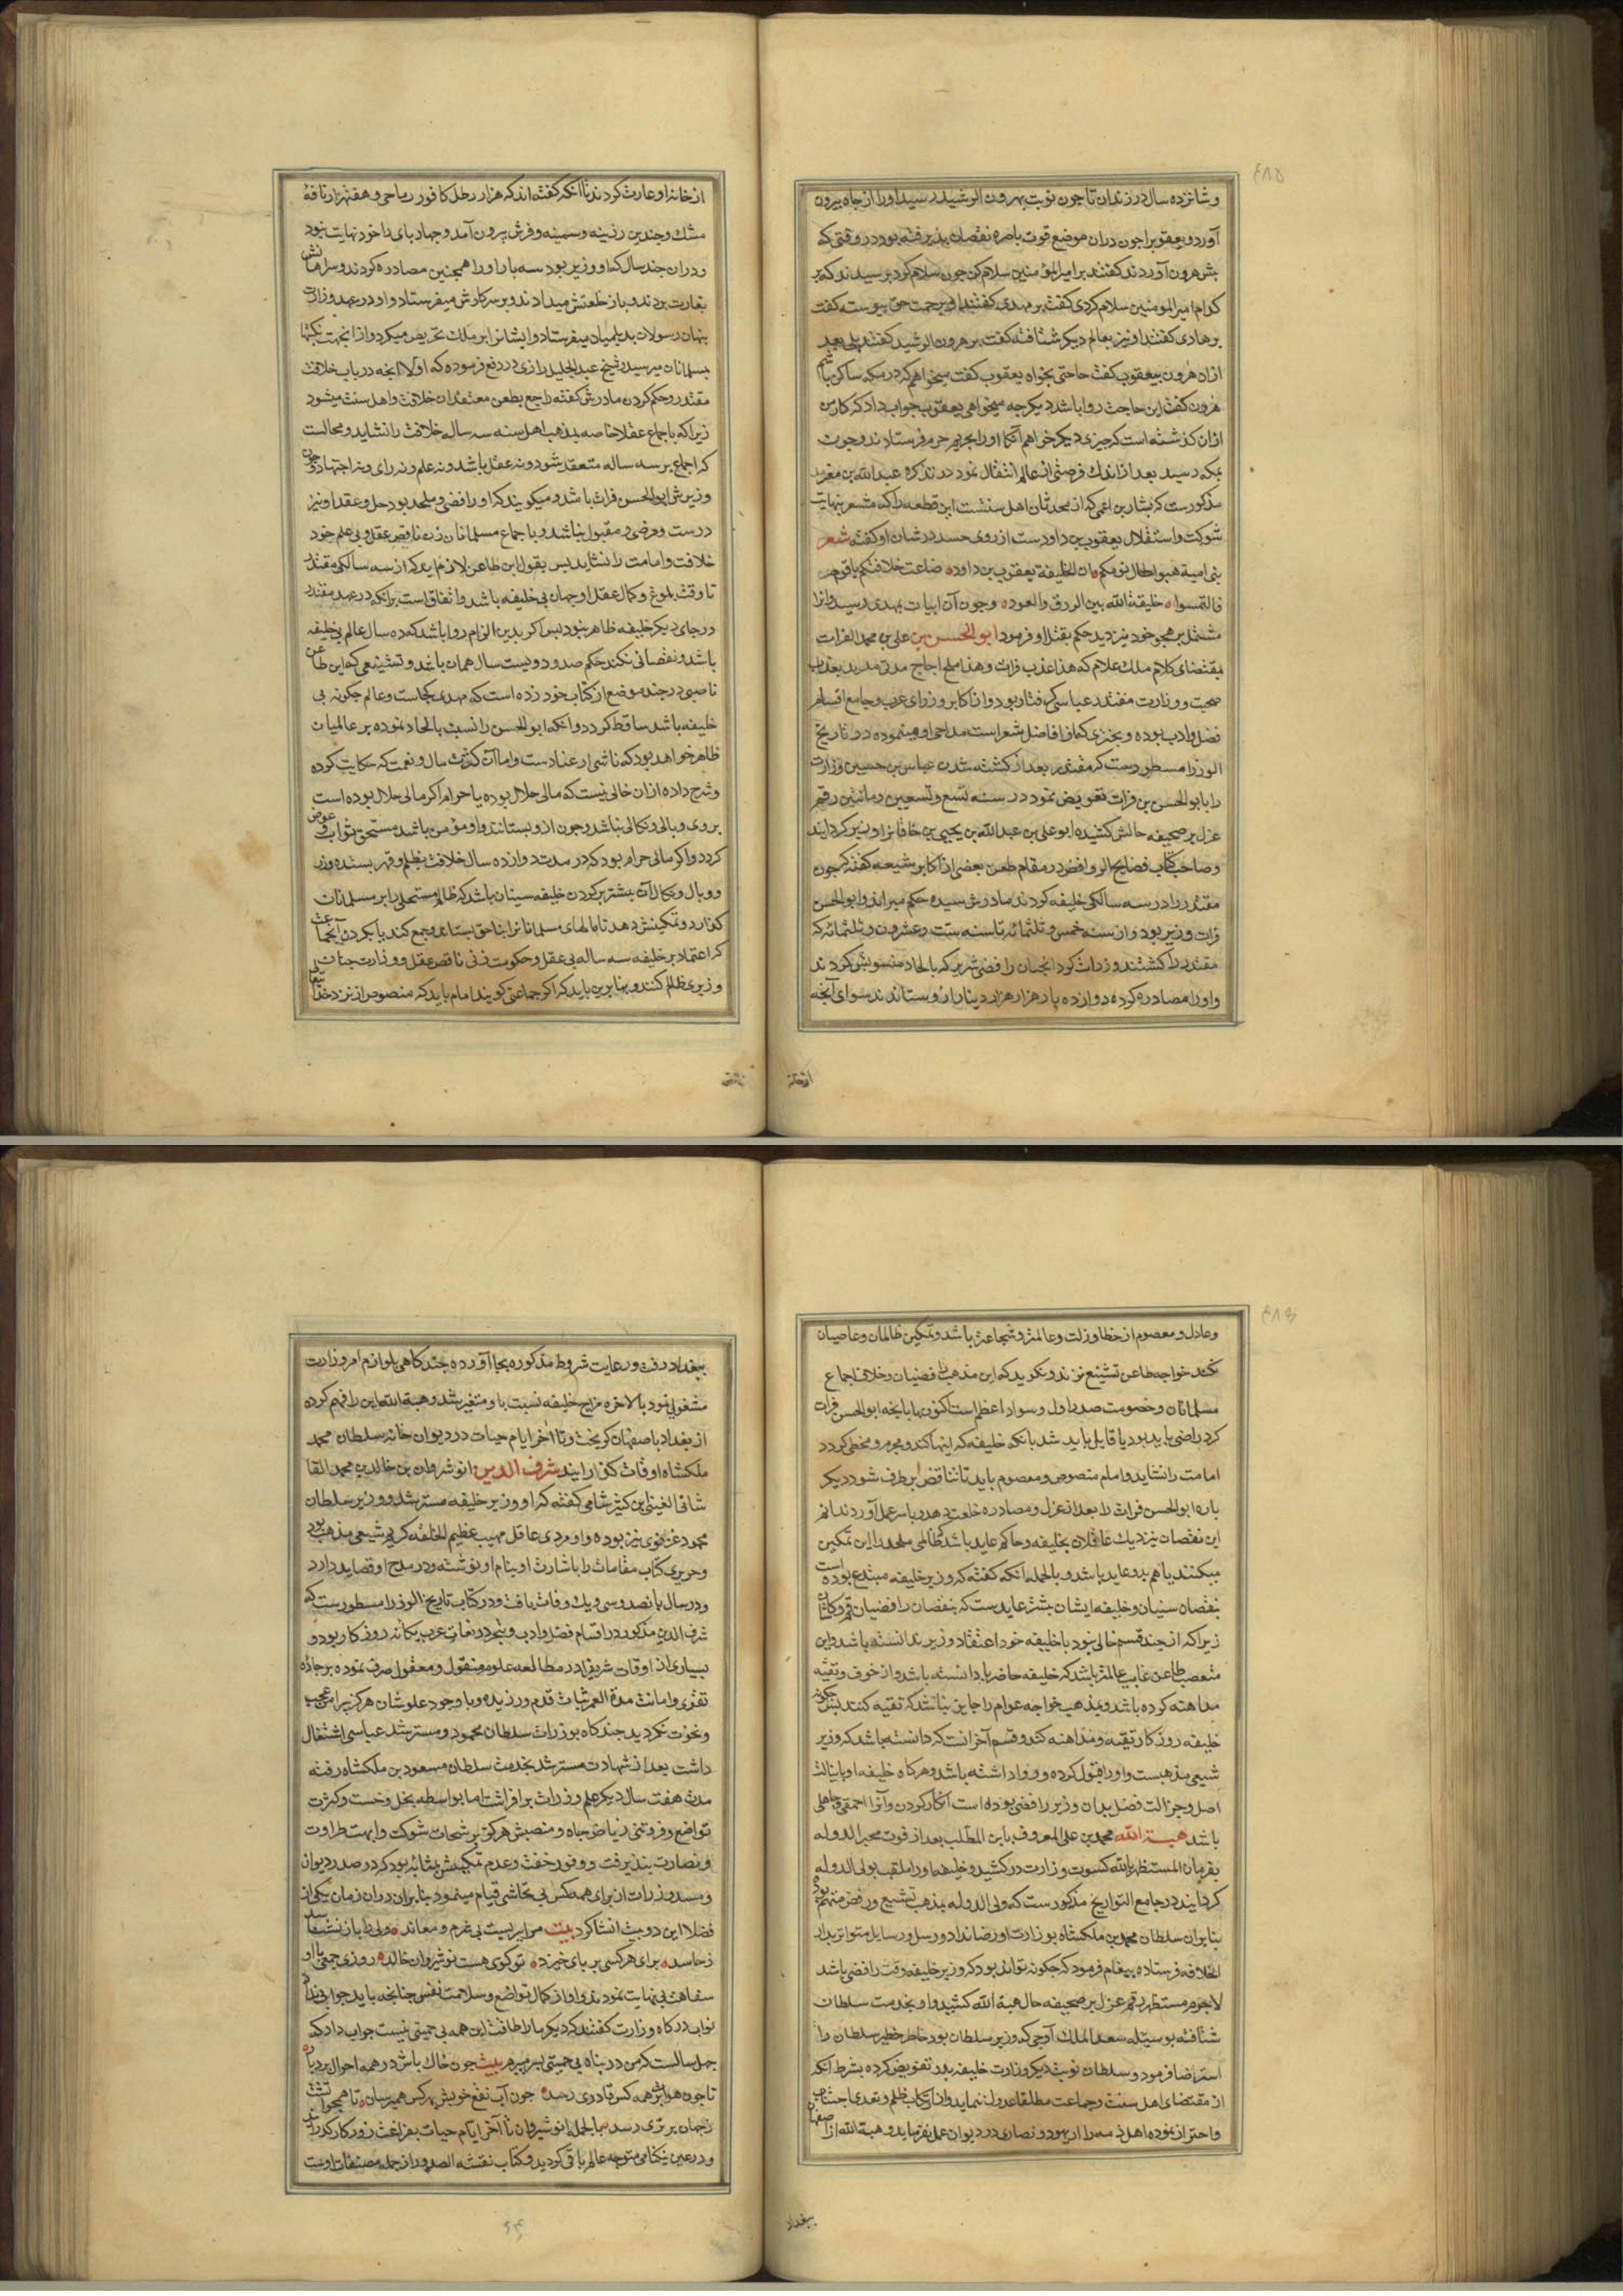 وشانزده سال در زندان تا چون نوبت بهرون الرشید رسید او را از چاه بیرون
آورد و یعقوب را چون دران موضع قوت باصره نقصان پذیرفته بود در وقتی که
پیش هرون آوردند گفتند بر امیرالمؤمنین سلام کن چون سلام کرد پرسیدند که بر
کدام امیر المومنین سلام کردی گفت بر مهدی گفتند او برحمت حق پیوست گفت
بر هادی گفتند او نیز بعالم دیگر شتافته گفت بر هرون الرشید گفتند بلی بعد
ازان هرون بیعقوب گفت حاجتی بخواه یعقوب گفت میخواهم که در مکه ساکن باشم
هرون گفت این حاجت روا باشد دیگر چه میخواهی یعقوب جواب داد که کار من
ازان گذشته است که چیزی دیگر خواهم آنگاه او را بحریم حرم فرستادند و چون
بمکه رسید بعد از اندک فرصتی از عالم انتقال نمود در تذکره عبدالله بن
مذکورست که بشار بن اعمی که از محدثان اهل سنتست این قطعه را که مشعر بنهایت
شوکت واستقلال یعقوب بن داودست از روی حسد در شان او گفته شعر
بنی امیة هبوا طال نومکم ان الخلیفة یعقوب بن داود ضاعت خلافتکم یا قوم
فالتمسوا خلیفة الله بین الزق والعود وچون آن ابیات بمهدی رسید وانرا
مشتمل بر هجو خود نیز دید حکم بقتل او فرمود ابوالحسن بن علی بن محمد الفرات
بمقتضای کلام ملک علام که هذا عذب فرات وهذا ملح اجاج مدتی مدید بعذاب
صحبت ووزارت مقتدر عباسی گرفتار بود و از اکابر وزرای عرب وجامع اقسام
فضل وادب بوده وبحتری که از افاضل شعراست مداحی او مینموده در تاریخ
الوزرا مسطورست که مقتدر بعد از کشته شدن عباس بن حسین وزارت
را بابوالحسن بن فرات تفویض نمود در سنه تسع وتسعین ومائتین رقم
عزل بر صحیفه حالش کشیده ابو علی بن عبدالله بن یحیی بن خاقان را وزیر گردانید
وصاحب کتاب فضایح الروافض در مقام طعن بعضی از اکابر شیعه گفته که چون
مقتدر را در سه سالگی خلیفه کردند مادرش سیده حکم میراند وابوالحسن
فرات وزیر بود و از سنه خمس وثلثمائه تا سنه ست وعشرون وثلثمائه که
مقتدر را کشتند وزارت کرد انچنان رافضی شریر که بالحاد منسوبش کردند
واو را مصادره کرده دوازده بار هزار هزار دینار ازو ستاندند سوای آنچه
از خانه
از خانه او غارت کردند تا آنکه گفته اند که هزار رطل کافور ریاحی و هفتهزار نافهٔ
مشک وچندین زرینه وسیمینه وفرش بیرون آمد وچهارپای را خود نهایت نبود
ودران چند سال که او وزیر بود سه بار او را همچنین مصادره کردند وسراهاش
بغارت بردند و باز خلعتش میدادند و بر سر کارش میفرستاد واو در عهد وزارت
پنهان رسولان بدیلمیان میفرستاد وایشانرا بر ملک تحریض میکرد و ازانجهت نکبتها
بمسلمانان میرسید وشیخ عبدالجلیل رازی در دفع فرموده که اولا انچه در باب خلافت
مقتدر وحکم کردن مادرش گفته راجع بطعن معتقدان خلافت واهل سنت میشود
زیرا که باجماع عقلا خاصه بمذهب اهل سنه سه ساله خلافت را نشاید ومحالست
که اجماع بر سه ساله منعقد شود ونه عقل باشد ونه علم ونه رای ونه اجتهاد وچون
وزیرش ابوالحسن فرات باشد ومیگویند که او رافضی وملحد بود حل وعقد او نیز
درست ومرضی ومقبول نباشد وباجماع مسلمانان زن ناقص عقل وبی علم خود
خلافت وامامت را نشاید پس بقول این طاعن لازم آید که از سه سالگی مقتدر
تا وقت بلوغ وکمال عقل او جهان بی خلیفه باشد واتفاق است بر آنکه در عهد مقتدر
در جای دیگر خلیفه ظاهر نبود پس اگر بدین الزام روا باشد که ده سال عالم بی خلیفه
باشد ونقصانی نکند حکم صد ودویست سال همان باشد وتشنیعی که این طاعن
ناصبی در چند موضع از کتاب خود زده است که مهدی کجاست وعالم چگونه بی
خلیفه باشد ساقط گردد وآنکه ابوالحسن را نسبت بالحاد نموده بر عالمیان
ظاهر خواهد بود که ناشی از عنادست واما آن کثرت مال ونعمت که حکایت کرده
وشرح داده ازان خالی نیست که مالی حلال بوده یا حرام اگر مالی حلال بوده است
بروی وبالی ونکالی نباشد وچون ازو بستانند واو مؤمن باشد مستحق ثواب وعوض
گردد واگر مالی حرام بود که در مدت دوازده سال خلافت بظلم وقهر بستده وزر
ووبال ونکال آن بیشتر بگردن خلیفه سنیان باشد که ظالم مستحلی را بر مسلمانان
گمارد وتمکینش دهد تا مالهای مسلمانانرا بناحق بستاند وجمع کند یا بگردن آنجماعت
که اعتماد بر خلیفه سه ساله بی عقل وحکومت زنی ناقص عقل ووزارت چنان
وزیری ظالم کنند وبنابرین باید که اگر جماعتی گویند امام باید که منصوص از نزد خدا
وعادل ومعصوم از خطا وزلت وعالمتر وشجاعتر باشد وتمکین ظالمان وعاصیان
نکند خواجه طاعن تشنیع نزند ونگوید که این مذهب رافضیان وخلاف اجماع
مسلمانان وخصومت صدر اول وسواد اعظم است اکنون یا بآنچه ابوالحسن فرات
کرد راضی باید بود یا قایل باید شد بآنکه خلیفه که اینها کند ومجرم ومخطی گردد
امامت را نشاید وامام منصوص ومعصوم باید تا تناقض برطرف شود دیگر
باره ابوالحسن فرات را بعد از عزل ومصادره خلعت دهد وبا سر عمل آوردند انهم
این نقصان نزدیک عاقلان بخلیفه وحاکم عاید باشد که ظالمی ملحد را این تمکین
میکنند یا هم بدو عاید باشد وبالجمله آنکه گفته که وزیر خلیفه مبتدع بوده است
نقصان سنیان وخلیفه ایشان بیشتر عایدست که بنقصان رافضیان قم وکاشان
زیرا که از چند قسم خالی نبود یا خلیفه خود اعتقاد وزیر ندانسته باشد واین
متعصب طاعن غایب عالمتر باشد که خلیفه حاضر یا دانسته باشد و از خوف وتقیه
مداهنه کرده باشد وبمذهب خواجه عوام را جایز نباشد که تقیه کنند پس چگونه
خلیفه روزگار تقیه ومداهنه کند وقسم آخر انست که دانسته باشد که وزیر
شیعی مذهبست واو را قبول کرده وروا داشته باشد وهرگاه خلیفه او با
اصل وجزالت فضل بدان وزیر راضی بوده است انکار کردن وآنرا احمقی وجاهلی
باشد هبة الله محمد بن علی المعروف بابن المطلب بعد از فوت مجیرالدوله
بفرمان المستظهر بالله کسوت وزارت درکشید وخلیفه او را ملقب بولی الدوله
گردانید در جامع التواریخ مذکورست که ولی الدوله بمذهب تشیع ورفض متهم بود
بنابران سلطان محمد بن ملکشاه بوزارت او رضا نداد ورسل ورسایل متواتر بدار
الخلافه فرستاده پیغام فرمود که چگونه تواند بود که وزیر خلیفه وقت رافضی باشد
لاجرم مستظهر رقم عزل بر صحیفه حال هبة الله کشید و او بخدمت سلطان
شتافته بوسیله سعد الملک آوجی که وزیر سلطان بود خاطر خطیر سلطان را
استرضا فرمود و سلطان نوبت دیگر وزارت خلیفه بدو تفویض کرده بشرط آنکه
از مقتضای اهل سنت وجماعت مطلقا عدول ننماید و از ارتکاب ظلم وتعدی اجتناب
واحتراز نموده اهل ذمه را از یهود ونصاری در دیوان عمل نفرماید وهبة الله از اصفهان
ببغداد
ببغداد رفت ورعایت شروط مذکوره بجا آورده چند گاهی بلوازم امر وزارت
مشغولی نمود بالاخره مزاج خلیفه نسبت باو متغیر شد وهبة الله این را فهم کرده
از بغداد باصفهان گریخت وتا آخر ایام حیات در دیوان خانه سلطان محمد
ملکشاه اوقات گذرانید شرف الدین انوشروان بن خالد بن محمد القا
شانی الغینی ابن کثیر شامی گفته که او وزیر خلیفه مسترشد ووزیر سلطان
محمود غزنوی نیز بوده واو مردی عاقل مهیب عظیم الخلقه کریم شیعی مذهب بود
وحریری کتاب مقامات را باشارت او بنام او نوشته ودر مدح او قصاید دارد
ودر سال پانصد وسی ویک وفات یافت ودر کتاب تاریخ الوزرا مسطورست که
شرف الدین مذکور در اقسام فضل وادب وتبحر در لغات عرب یگانه روزگار بود و
بسیاری از اوقات شریف را در مطالعه علوم منقول ومعقول صرف نموده بر جاده
تقوی وامانت مدة العمر ثبات قدم ورزیده وباوجود علو شان هرگز پیرامن عجب
ونخوت نگردید چندگاه بوزارت سلطان محمود ومسترشد عباسی اشتغال
داشت بعد از شهادت مسترشد بخدمت سلطان مسعود بن ملکشاه رفته
مدت هفت سال دیگر علم وزارت برافراشت اما بواسطه بخل وخست وکثرت
تواضع وفروتنی ریاض جاه ومنصبش هرگز برشحات شوکت وابهت طراوت
ونضارت نپذیرفت ووفور خفت وعدم تمکینش بمثابه بود که در صدر دیوان
ومسند وزارت از برای همه کس بی تحاشی قیام مینمود بنابران دران زمان یکی از
فضلا این دو بیت انشا کرد بیت
ز حاسد برای هر کسی بر پای خیزد تو گوی هست نوشیروان خالد روزی جمعی با او
سفاهت بی نهایت نمودند واو از کمال تواضع وسلامت نفس چنانچه باید جواب نداد
نواب درگاه وزارت گفتند که دیگر ما را طاقت این همه بی حمیتی نیست جواب داد که
چهل سالست که من در پناه بی حمیتی بسر میبرم بیت چون خاک باش در همه احوال بردبار
تا چون هوا بر همه کس قادری رسد چون آب نفع خویش بهر کس همیرسان تا همچو آتشت
ز جهان برتری رسد بالجمله انوشیروان تا آخر ایام حیات بفراغت روزگار گذرانید
ودر عین نیکنامی متوجه عالم باقی گردید وکتاب نفثة الصدور از جمله مصنفات اوست